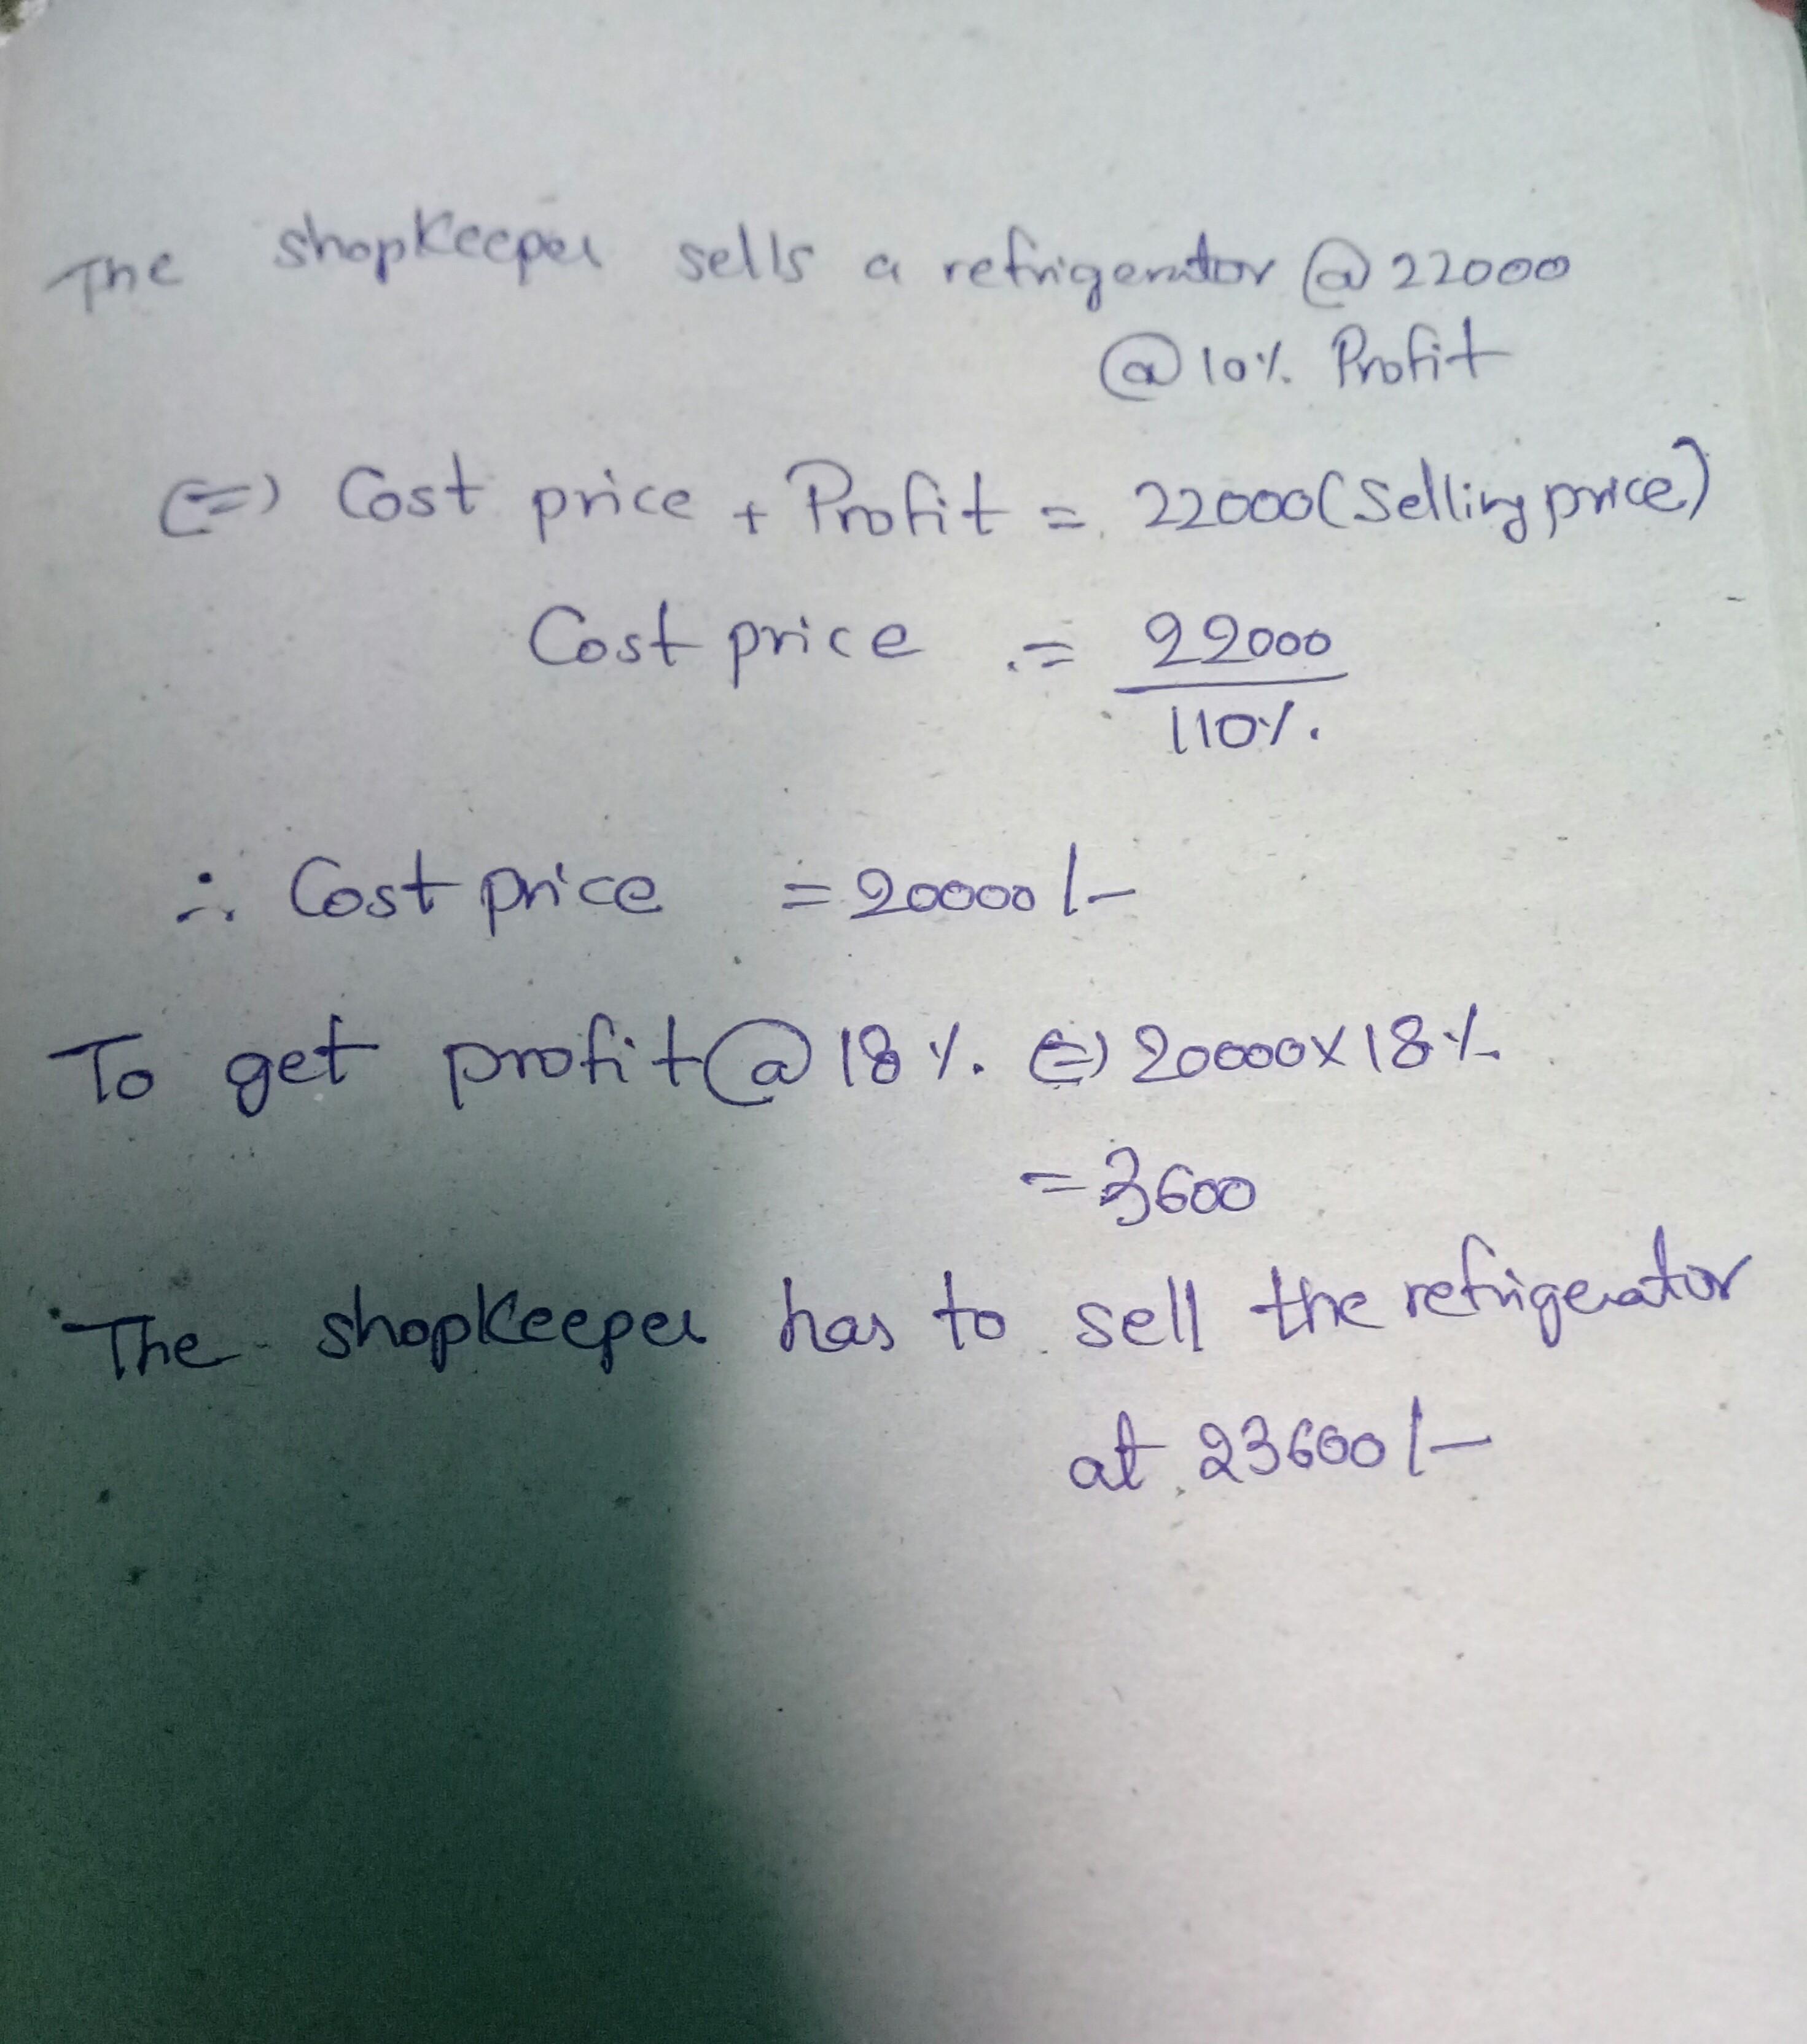 The shopkeeper sells a refrigerator @ 22000
@ 10% Profit
(=) Cost price + Profit = 22000 (Selling price)
Cost price = 22000
110%.
∴ Cost price = 20000/-
To get profit @ 18%. (=) 20000 x 18%
= 3600
The shopkeeper has to sell the refrigerator
at 23600/-